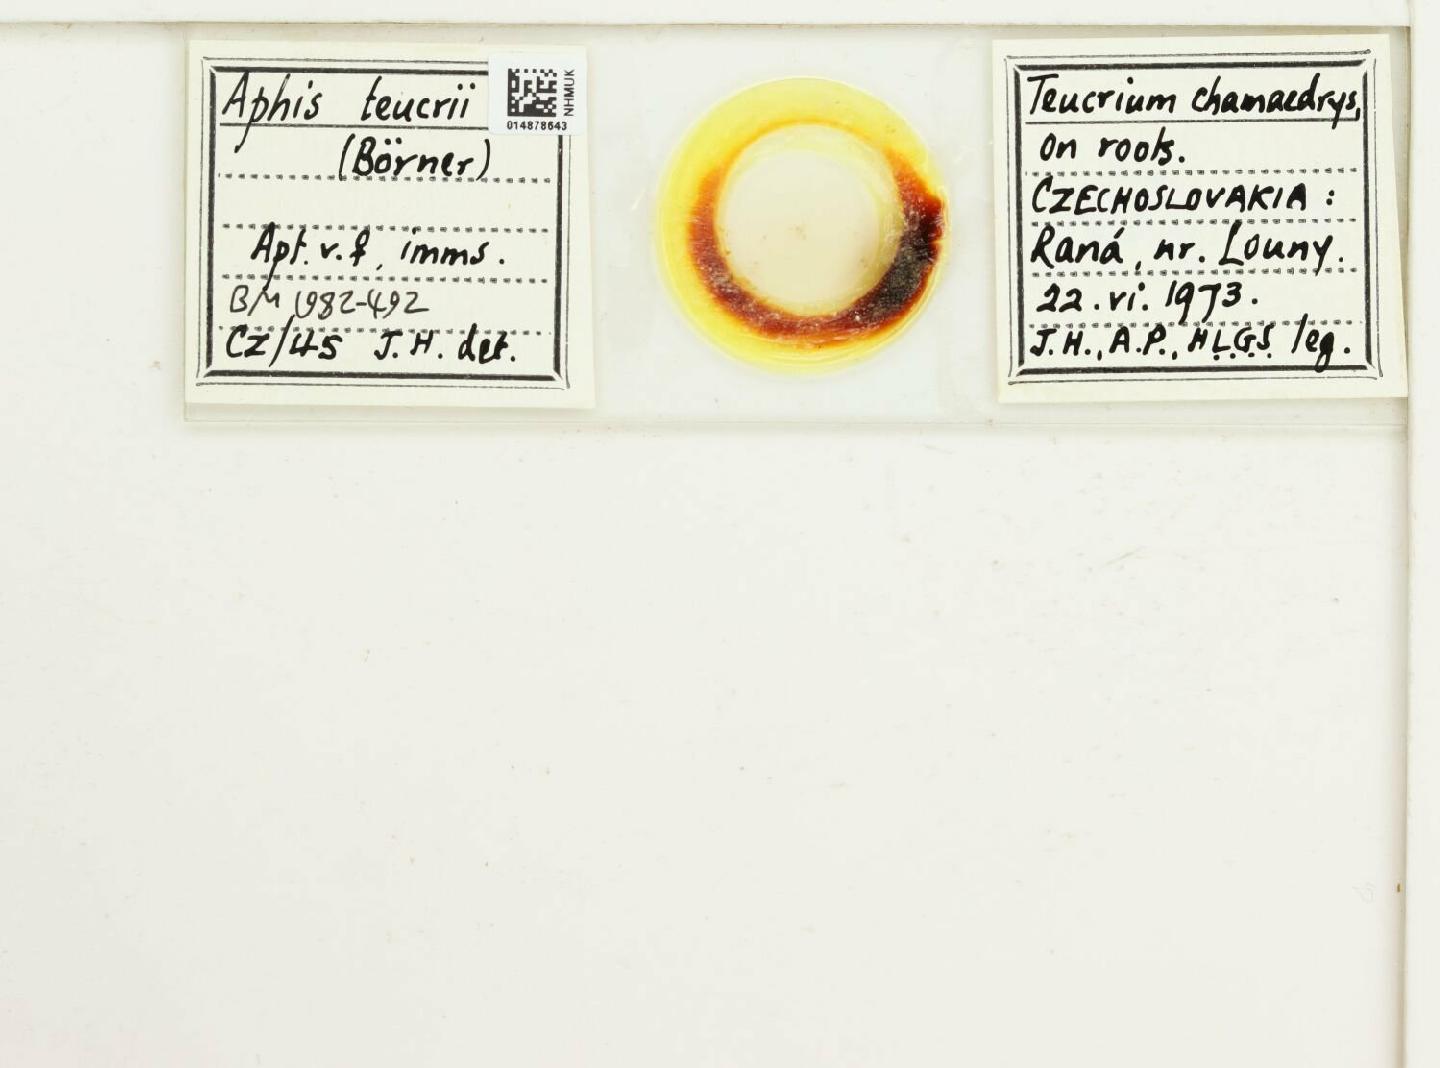 Aphis teucrii
(Börner)
Apt. v. ♀, imms.
BM 1982-492
CZ/45 J.H. det.
NHMUK
014878643
Teucrium chamaedrys,
on roots.
CZECHOSLOVAKIA :
Raná, nr. Louny.
22.vi.1973.
J.H., A.P., H.L.G.S. leg.